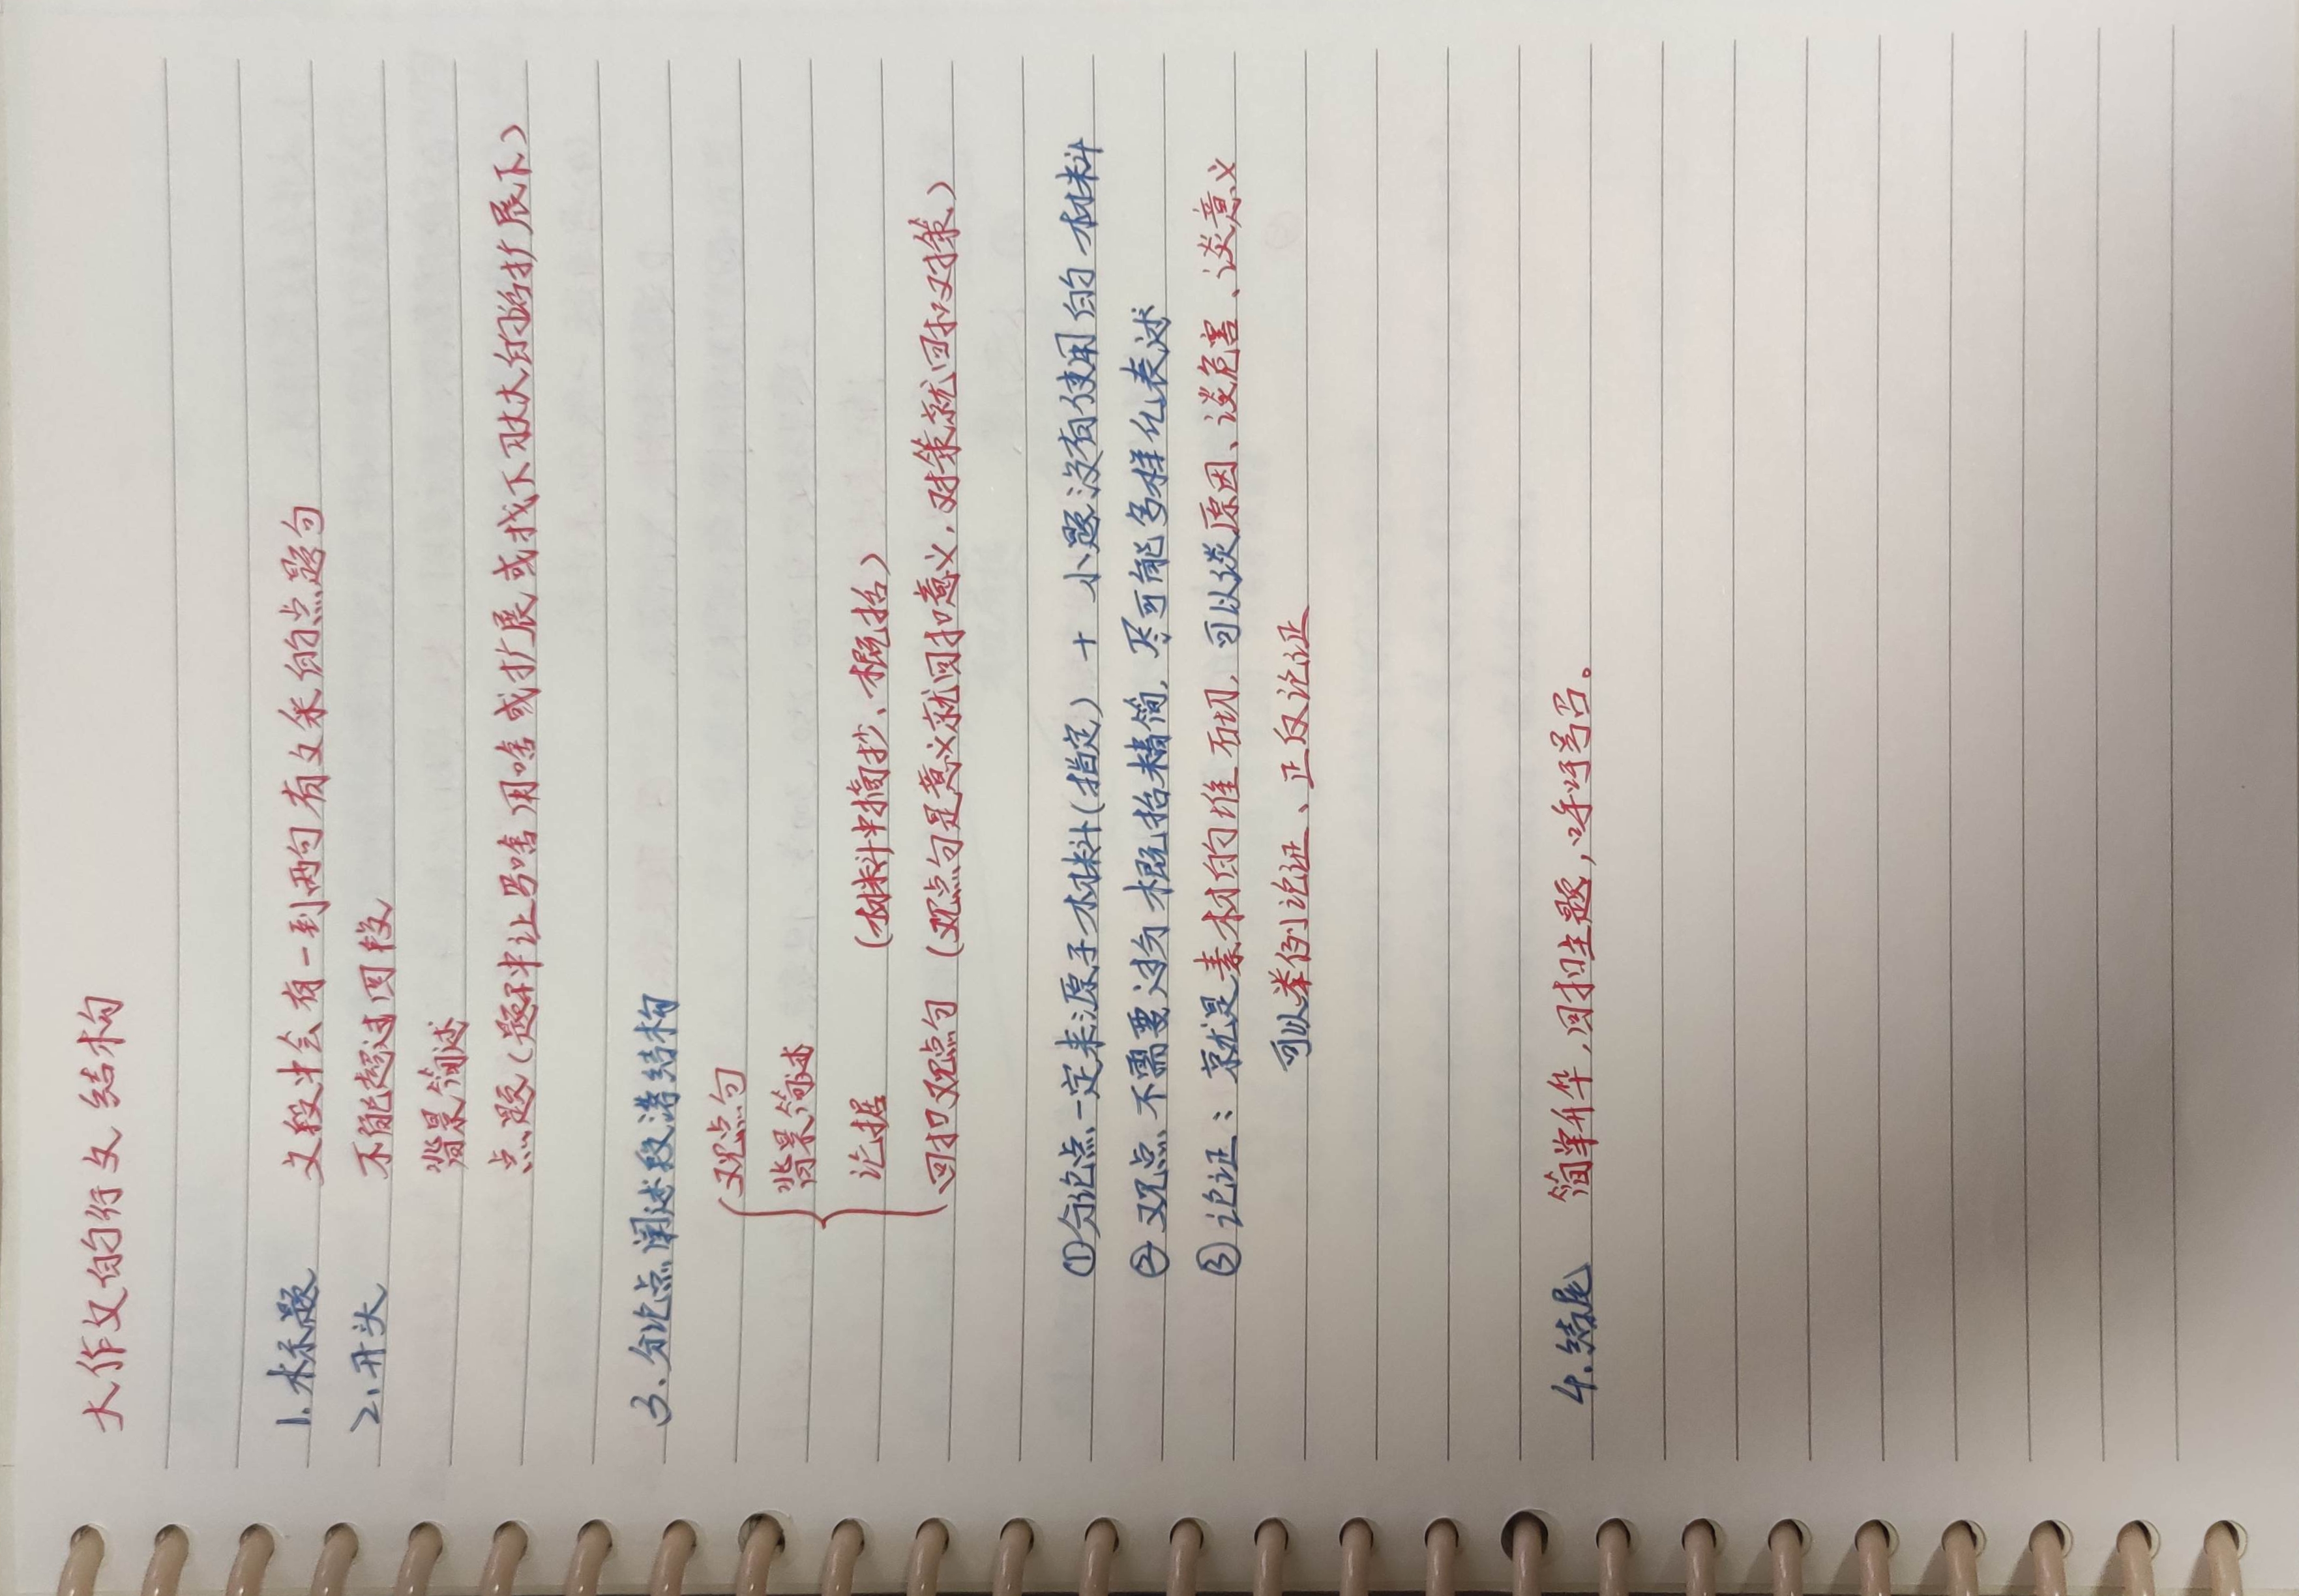 大作文的行文结构
1.标题 文段中会有一到两句有文采的点题句
2.开头 不能超过四段
背景简述
点题(题干中让写啥用啥或扩展或找下习大大的话扩展下)
3.分论点阐述段落结构
观点句
背景简述
论据 (材料中摘抄、概括)
回扣观点句 (观点句是意义就回扣意义,对策就回扣对策)
①分论点一定来源于材料(指定) + 小题没有使用的材料
②观点不需要过分概括精简,尽可能多样化表述
③论证:就是素材的堆砌,可以谈原因、谈危害、谈意义
可以举例论证、正反论证
4.结尾 简单升华,回扣主题,呼吁号召。